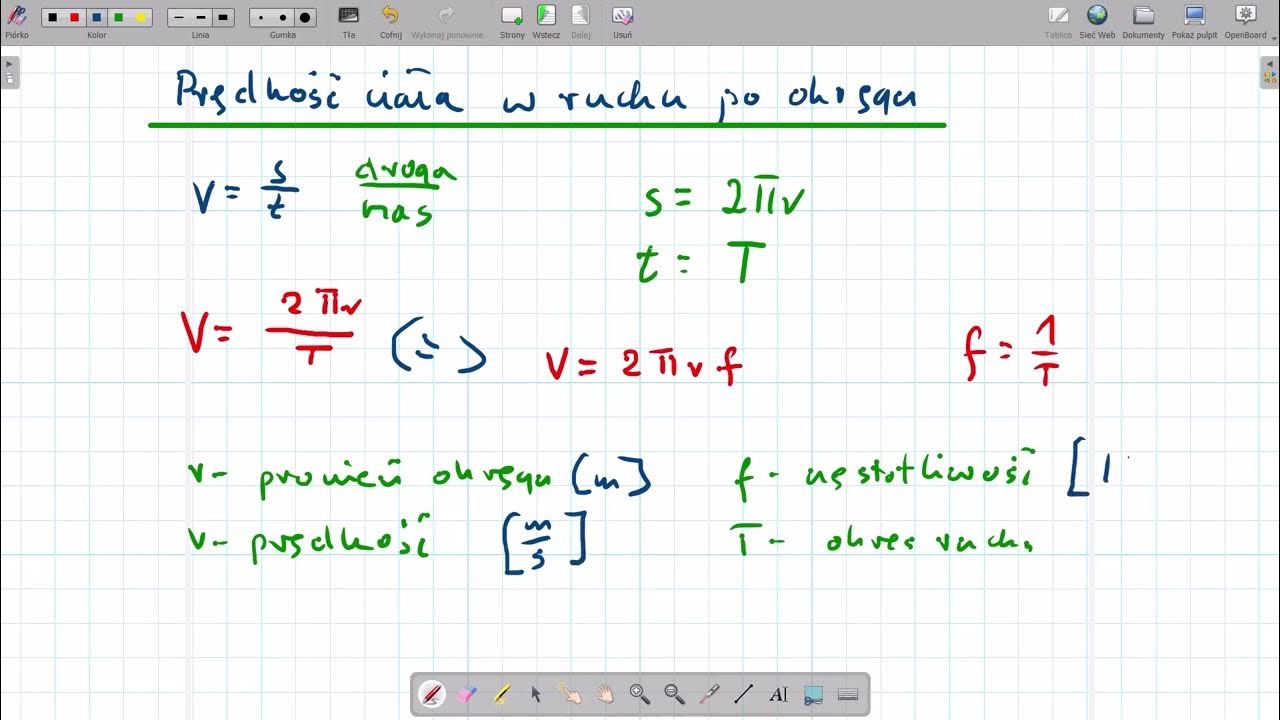 Piórko Kolor Linia Gumka Tła Cofnij Wykonaj ponownie Strony Wstecz Dalej Usuń Tablica Sieć Web Dokumenty Pokaż pulpit OpenBoard
Prędkość ciała w ruchu po okręgu
V = s/t droga/czas s = 2πr
t = T
V = 2πr/T (=) V = 2πr f f = 1/T
r - promień okręgu [m] f - częstotliwość [1
v - prędkość [m/s] T - okres ruchu
AI